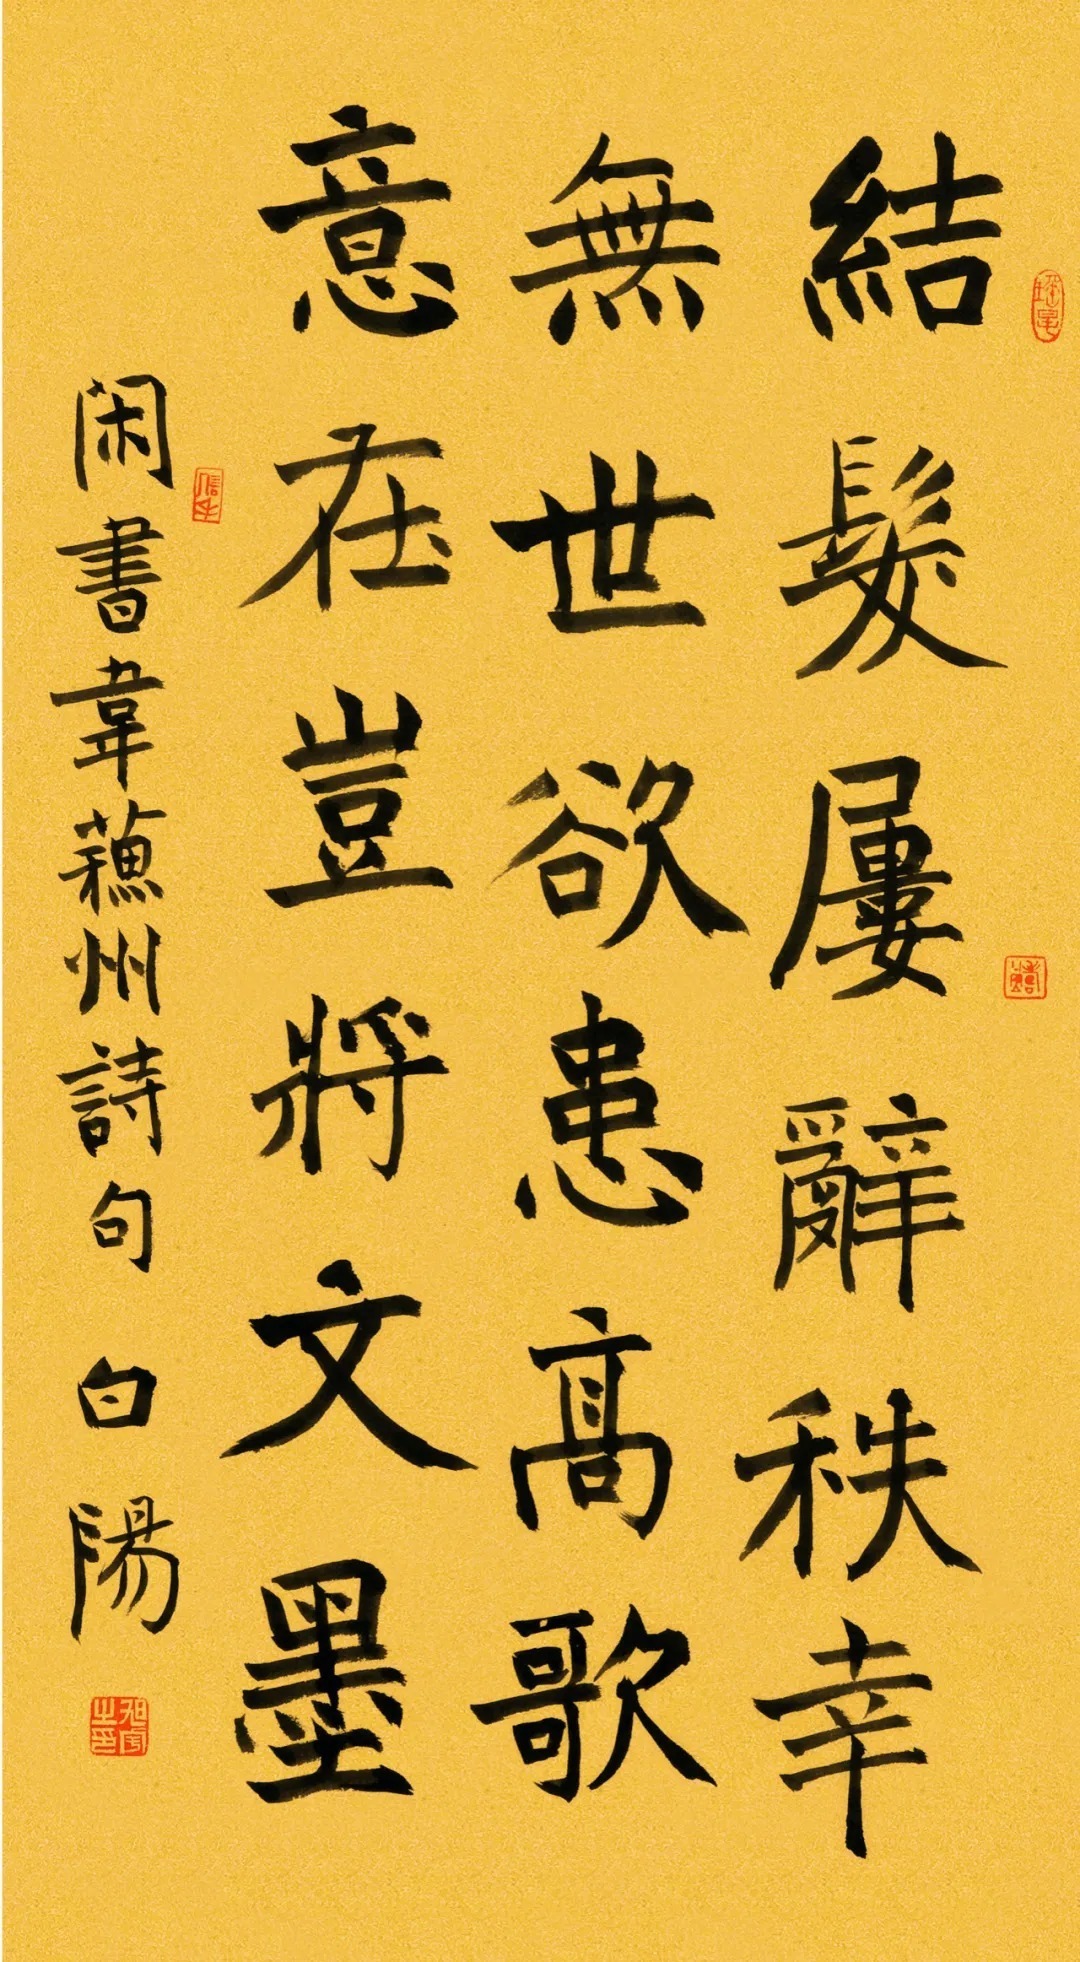 結髮屢辭秩幸
無世欲患高歌
意在豈將文墨
閑書韋蘓州詩句 白陽